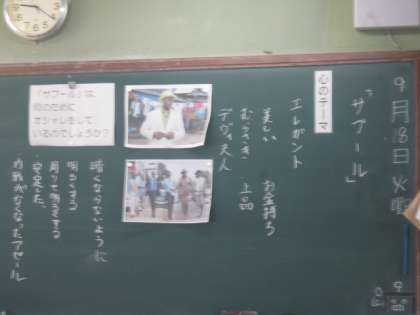 9月18日 火曜
「サプール」
心のテーマ
エレガント
美しい お金持ち
むらさき 上品
デヴィ夫人
「サプール」は、
何のために
オシャレをして
いるのでしょうか?
暗くならないように
明るくする
周りを明るくする
安定した
内戦がなくなったアピール